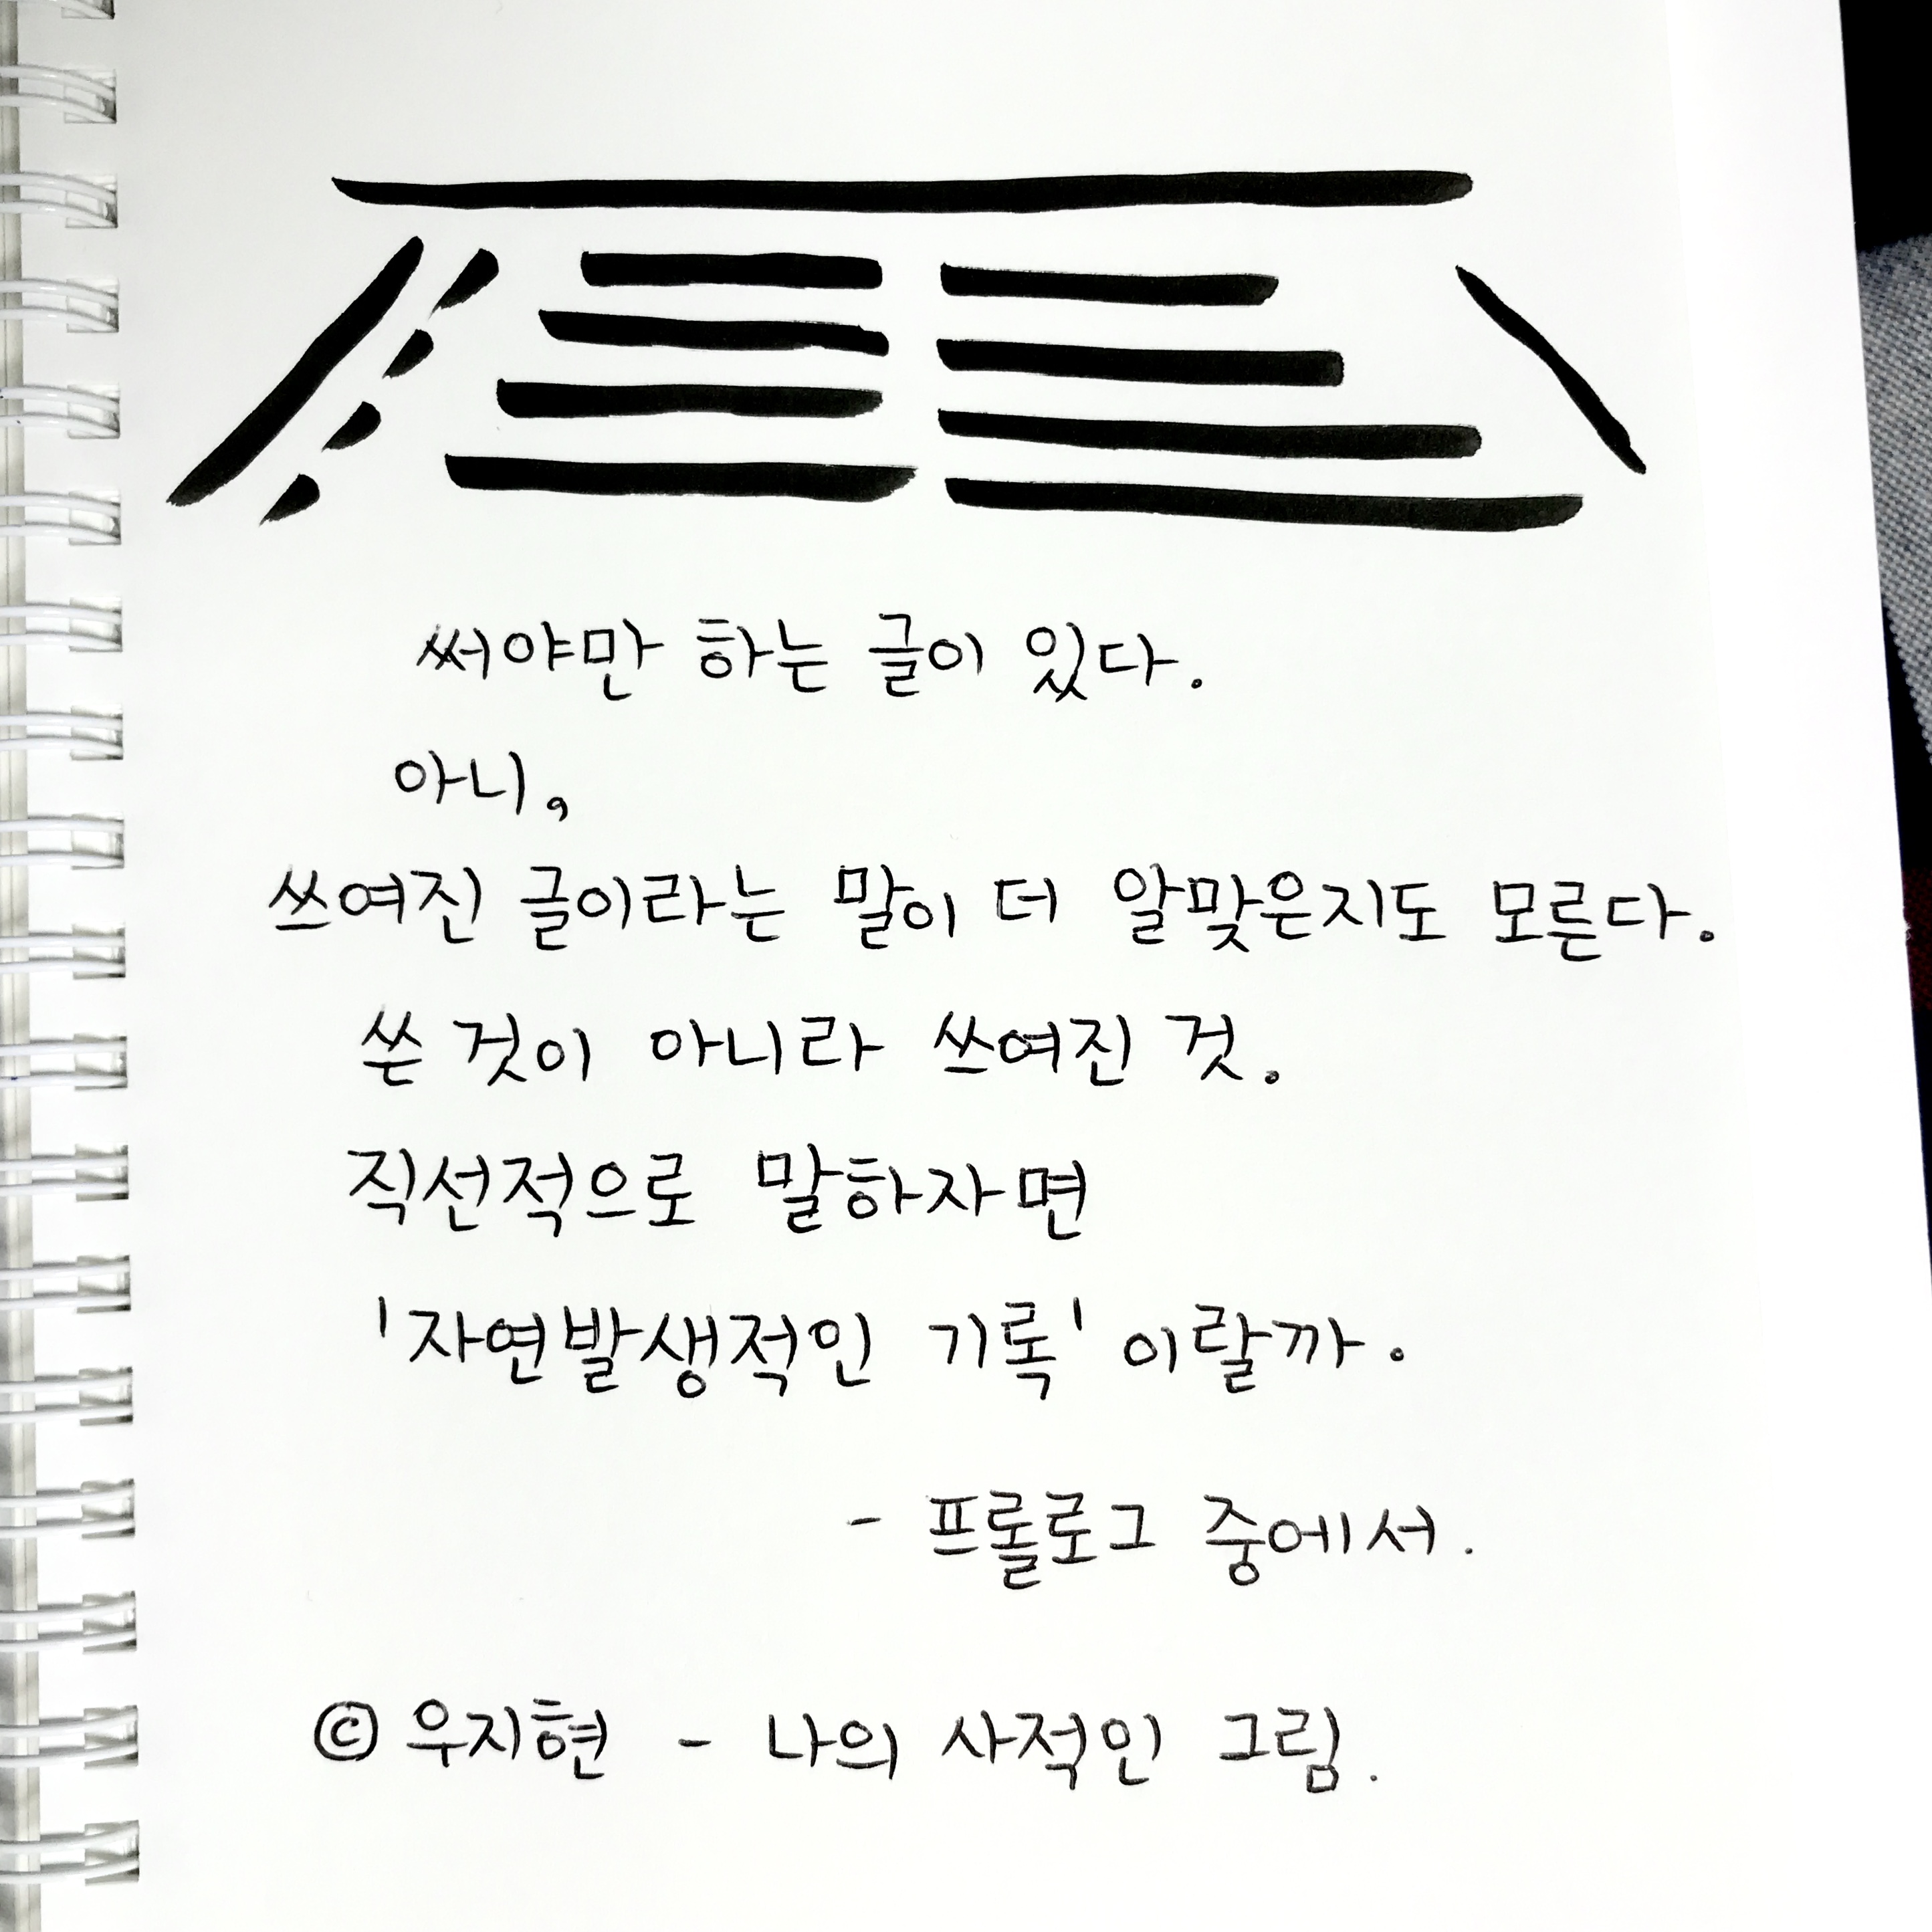 써야만 하는 글이 있다.
아니,
쓰여진 글이라는 말이 더 알맞은지도 모른다.
쓴 것이 아니라 쓰여진 것.
직선적으로 말하자면
'자연발생적인 기록' 이랄까.
- 프롤로그 중에서.
© 우지현 - 나의 사적인 그림.